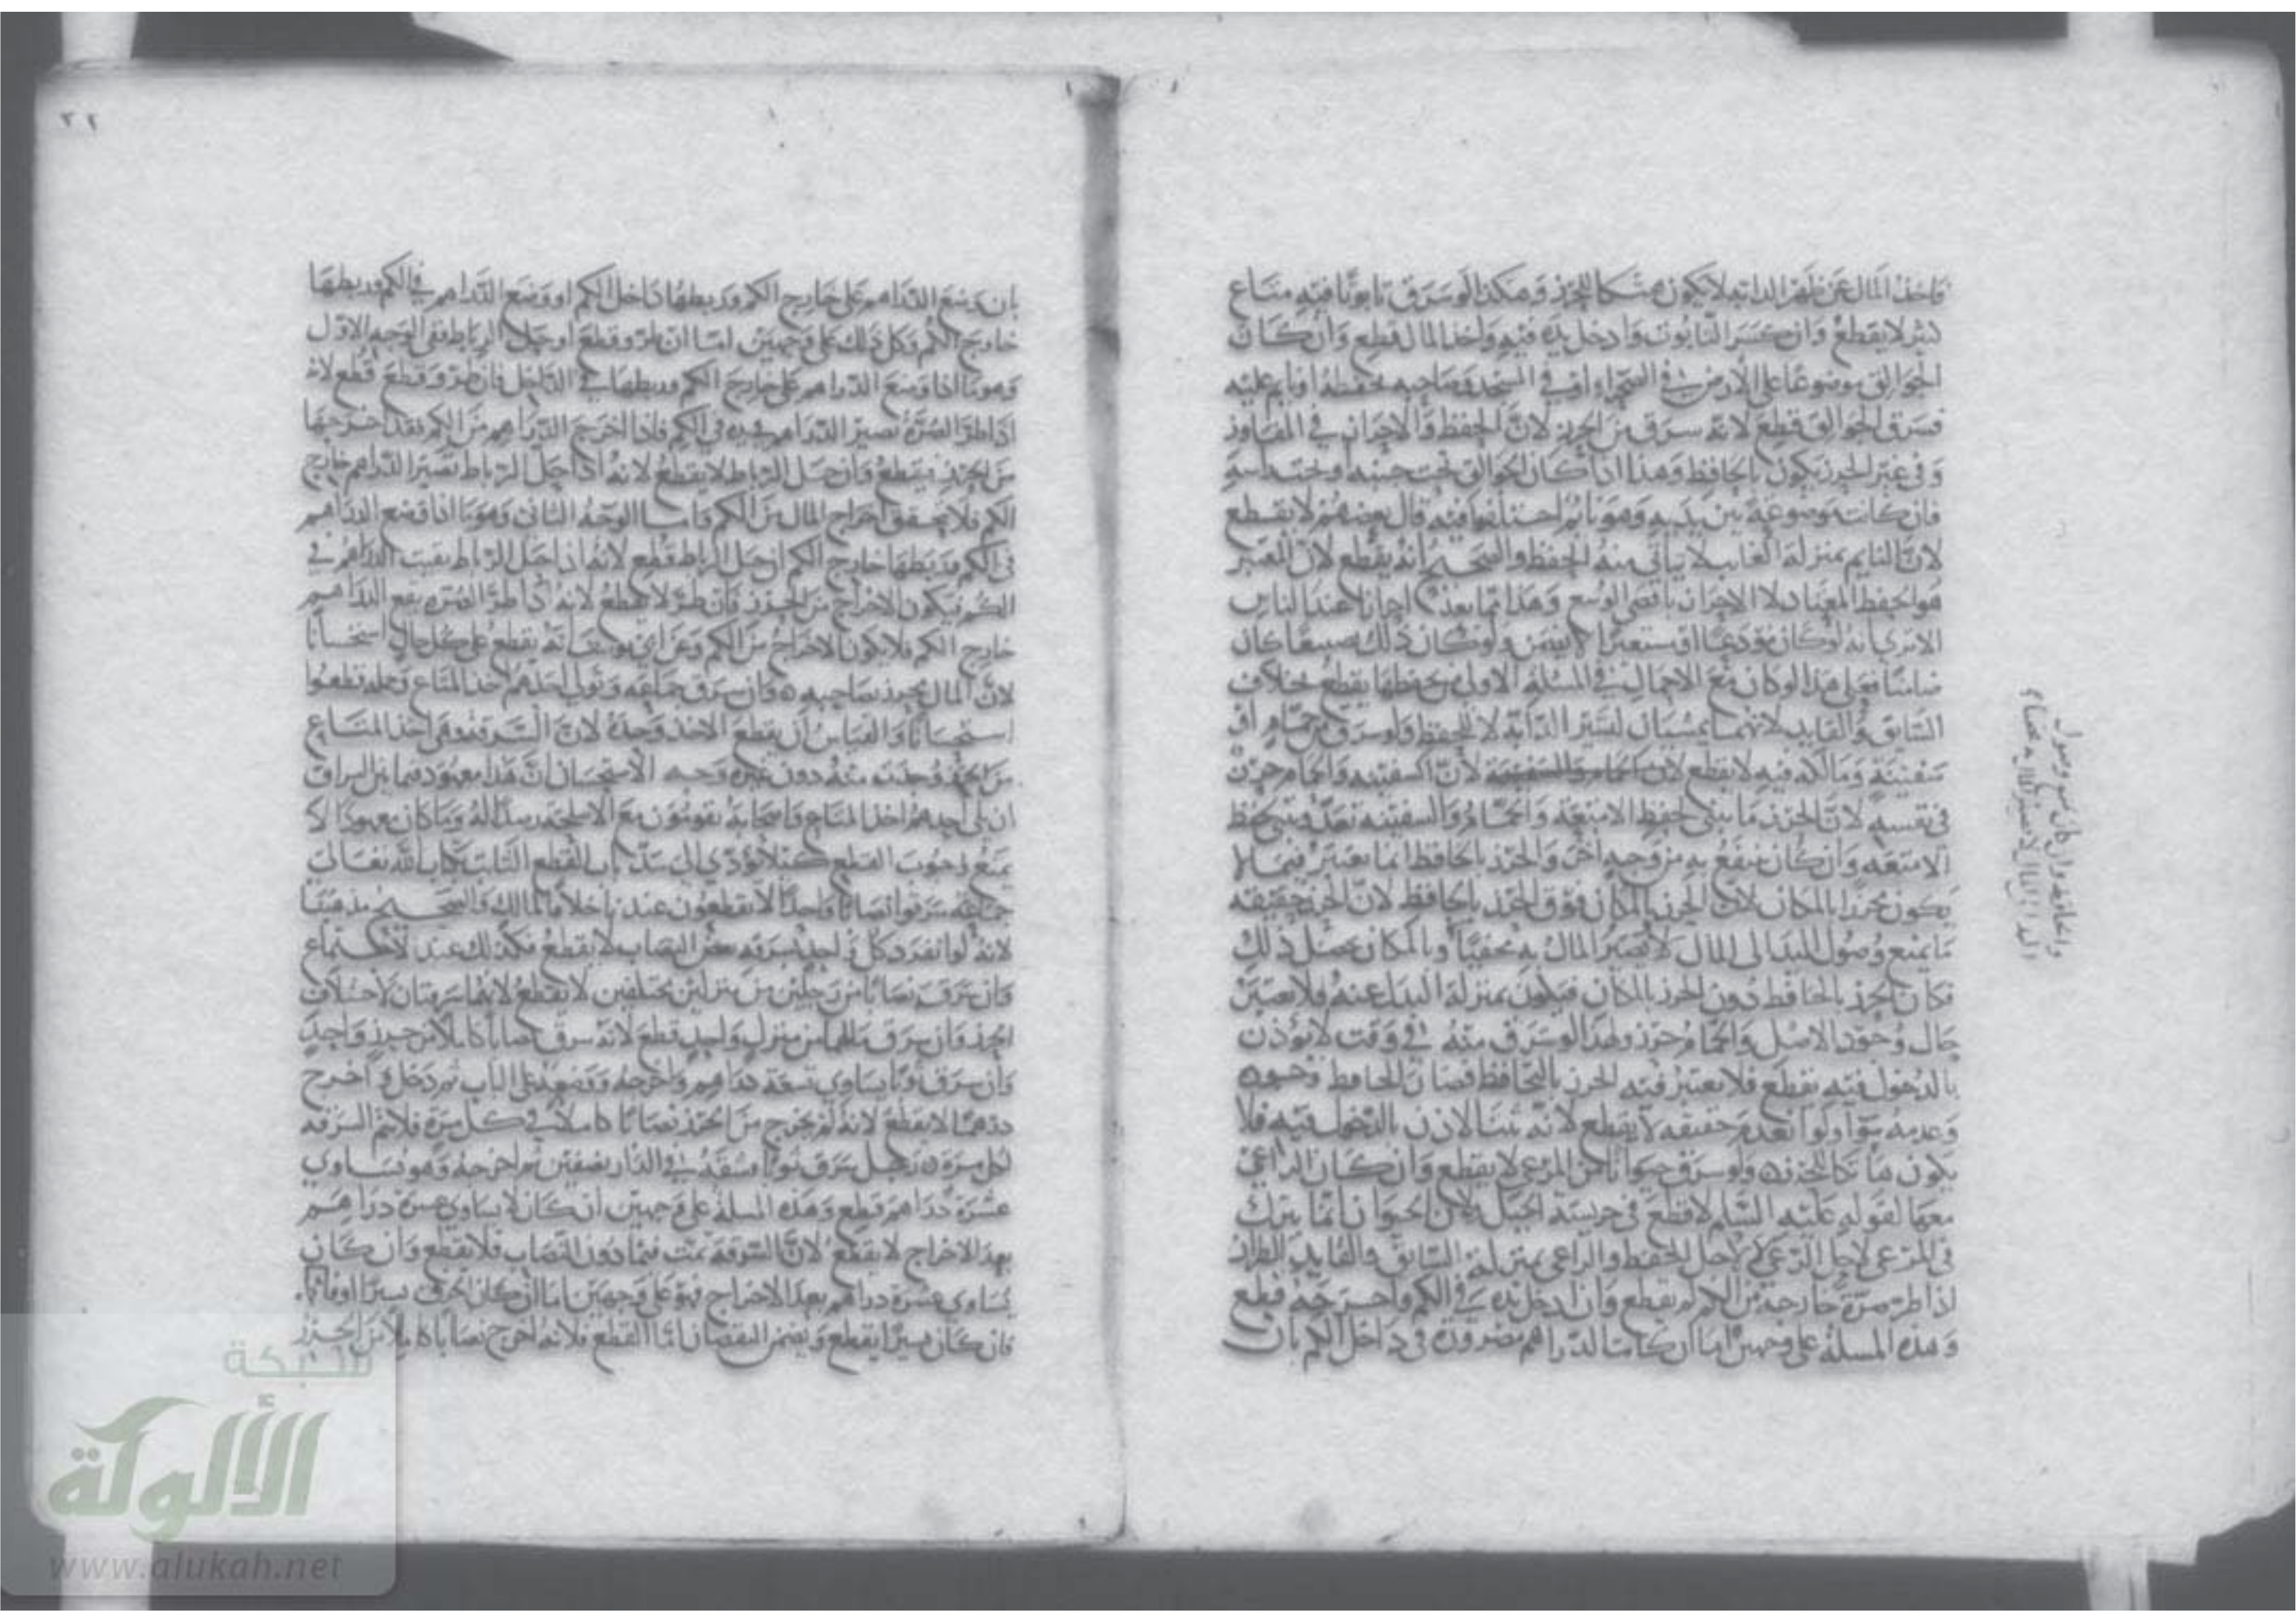 فاخذ المال عن ظهر الدابه لا يكون هتكا للحرز وهكذا لو سرق تابوتا فيه متاع
لا يقطع وان كسر التابوت وادخل يده فيه واخذ المال قطع وان كان
الجوالق موضوعا على الارض في الصحرا او في المسجد وصاحبه يحفظه او نايم عليه
فسرق الجوالق قطع لانه سرق من الحرز لان الحفظ والاحراز في المفاوز
وفي غير الحرز يكون بالحافظ وهذا اذا كان الجوالق تحت جنبه او تحت راسه
فان كانت موضوعة بين يديه وهو نايم اختلفوا فيه قال بعضهم لا يقطع
لان النايم بمنزلة الغايب لا يتاتى منه الحفظ والصحيح انه يقطع لان المعتبر
هو الحفظ المعتاد لا الاحراز باقصى الوسع وهذا مما يعد احرازا عند الناس
الا ترى انه لو كان مودعا او مستعيرا لا يضمن ولو كان ذلك تضييعا كان
ضامنا فعلى هذا لو كان مع الاحمال في المسئلة الاولى من يحفظها يقطع بخلاف
السايق والقايد لانهما يمشيان لسير الدابة لا للحفظ ولو سرق من حمام او
سفينة ومالكه فيه لا يقطع لان السفينه والحمام حرز
في نفسه لان الحرز ما بني لحفظ الامتعة والحمام والسفينه تعد
الامتعه وان كان ينتفع به من وجه اخر والحرز بالحافظ انما يعتبر فيما لا
يكون محرزا بالمكان لان الحرز بالمكان فوق الحرز بالحافظ لان الحرز حقيقة
ما يمنع وصول اليد الى المال لا يصير المال به مخفيا وبالمكان يحصل ذلك
فكان الحرز بالحافظ دون الحرز بالمكان فيكون بمنزلة البدل عنه فلا يعتبر
حال وجود الاصل والحمام حرز ولهذا لو سرق منه في وقت لا يؤذن
بالدخول فيه يقطع فلا يعتبر فيه الحرز بالحافظ فصار الحافظ وجوده
وعدمه سوا ولو انعدم حقيقه لا يقطع لانه ثبت الاذن بالدخول فيه فلا
يكون هاتكا للحرز ولو سرق حيوانا من المرعى لا يقطع وان كان الراعي
معها لقوله عليه السلام لا قطع في حريسة الجبل لان الحيوان انما يترك
في المرعى لاجل الرعي لا لاجل الحفظ والراعي بمنزلة السايق والقايد الطرار
اذا طر صرة خارجة من الكم لم يقطع وان ادخل يده في الكم واخرجه قطع
وهذه المسئلة على وجهين اما ان كانت الدراهم مصرورة في داخل الكم بان
والحافظ وان كان يمنع وصول
اليد الى المال لا يصير المال به مخفيا
٣٢
بان وضع الدراهم على خارج الكم وربطها داخل الكم او وضع الدراهم في الكم وربطها
خارج الكم وكل ذلك على وجهين اما ان طر وقطع او حل الرباط ففي الوجه الاول
وهو ما اذا وضع الدراهم على خارج الكم وربطها في الداخل فان طر وقطع قطع لانه
اذا طر الصرة تصير الدراهم في يده في الكم فاذا اخرج الدراهم من الكم فقد اخرجها
من الحرز فيقطع وان حل الرباط لا يقطع لانه اذا حل الرباط تصير الدراهم خارج
الكم فلا يتحقق اخراج المال من الكم واما الوجه الثاني وهو ما اذا وضع الدراهم
في الكم وربطها خارج الكم ان حل الرباط قطع لانه اذا حل الرباط بقيت الدراهم في
الكم فيكون الاخراج من الحرز فان طر لا يقطع لانه اذا طر الصرة يقع الدراهم
خارج الكم فلا يكون الاخراج من الكم وعن ابي يوسف انه يقطع على كل حال استحسانا
لان المال محرز بصاحبه فان سرق جماعه وتولى احدهم اخذ المتاع وحمله قطعوا
استحسانا والقياس ان يقطع الاخذ وحده لان السرقه وهي اخذ المتاع
من الحرز وجدت منه دون غيره وجه الاستحسان ان هذا معهود فيما بين السراق
ان يلي احدهم اخذ المتاع واصحابه يقومون مع الاسلحة ردءا له وما كان معهودا لا
يمنع وجوب القطع كيلا يؤدي الى سد باب القطع الثابت بكتاب الله تعالى
جماعه سرقوا نصابا واحدا لا يقطعون عندنا خلافا لمالك والصحيح مذهبنا
لانه لو انفرد كل واحد بسرقه بعض النصاب لا يقطع فكذلك عند الاجتماع
وان سرق نصابا من رجلين من منزلين مختلفين لا يقطع لانهما سرقتان لاختلاف
الحرز وان سرق مالهما من منزل واحد قطع لانه سرق نصابا كاملا من حرز واحد
وان سرق ثوبا يساوي تسعة دراهم واخرجه ووضعه على الباب ثم دخل واخرج
درهما لا يقطع لانه لم يخرج من الحرز نصابا كاملا في كل مرة فلا تتم السرقه
لكل مرة رجل سرق ثوبا فشقه في الدار نصفين ثم اخرجه وهو يساوي
عشرة دراهم قطع وهذه المسئلة على وجهين ان كان لا يساوي عشرة دراهم
بعد الاخراج لا يقطع لان السرقة تمت فيما دون النصاب فلا يقطع وان كان
يساوي عشرة دراهم بعد الاخراج فهو على وجهين اما ان كان الخرق يسيرا او فاحشا
فان كان يسيرا يقطع ويضمن النقصان اما القطع فلانه اخرج نصابا كاملا من الحرز
شبكة
الألوكة
www.alukah.net